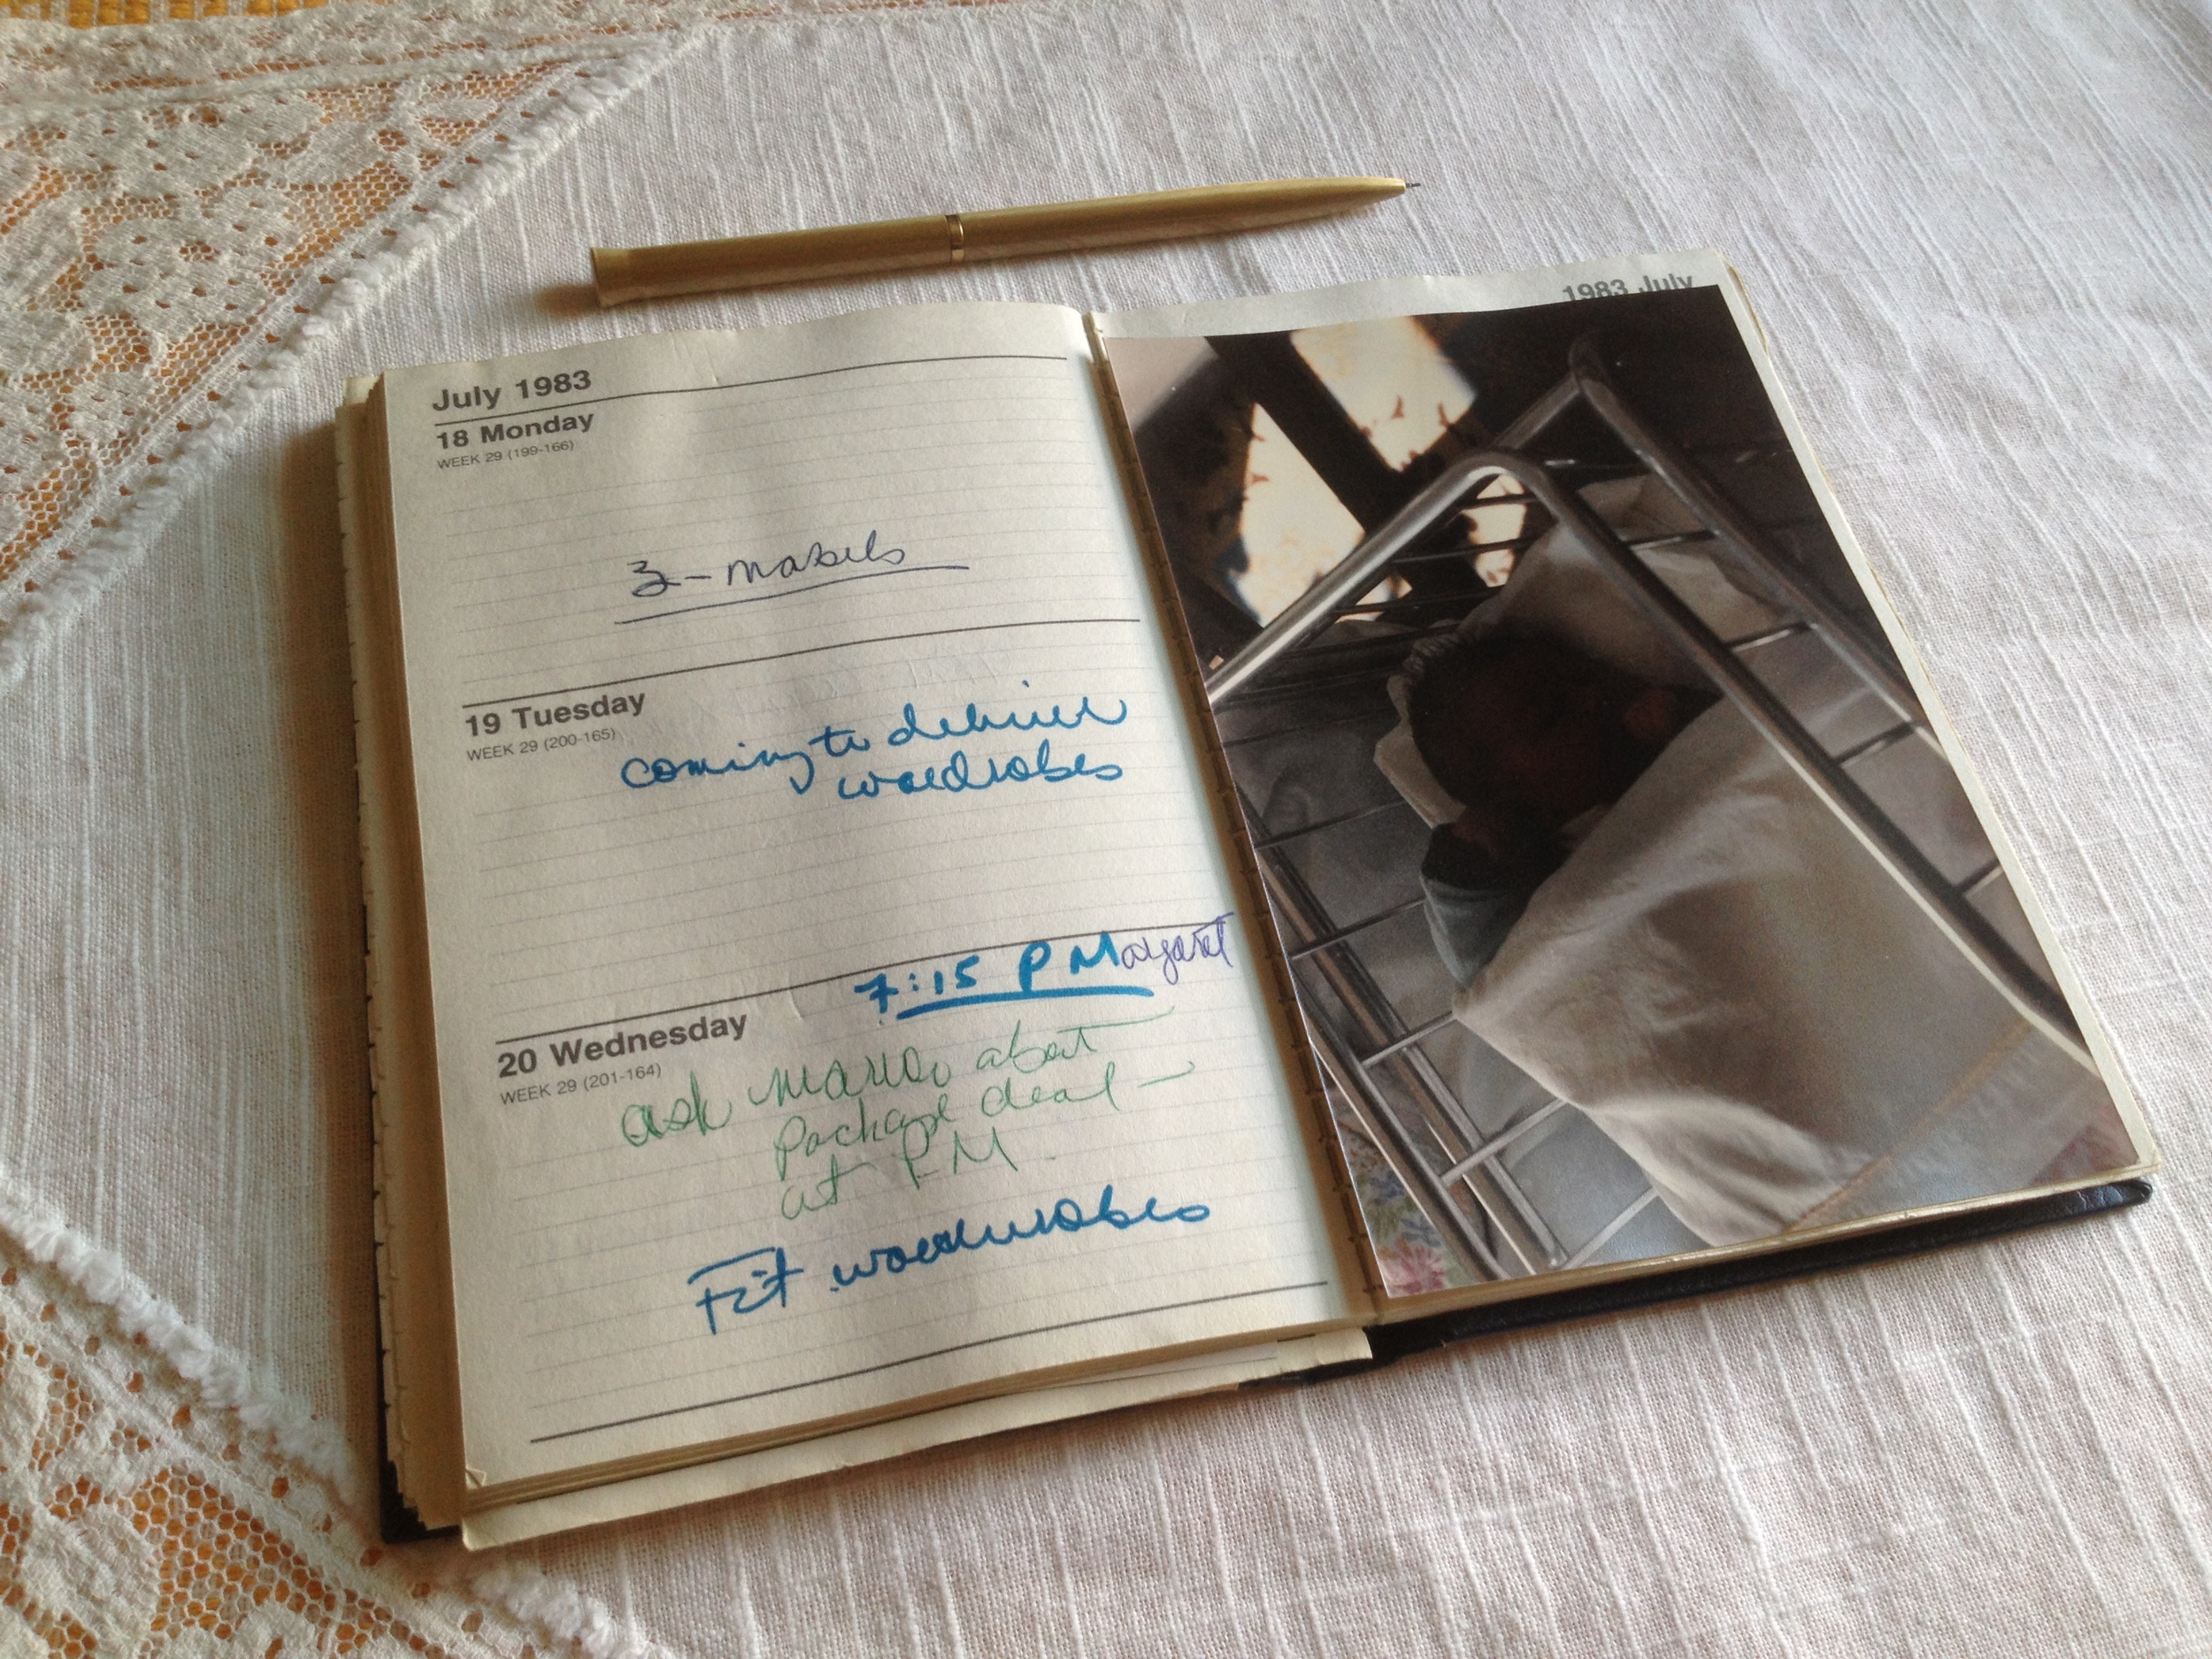 July 1983
18 Monday
WEEK 29 (199-166)
3-mabels
19 Tuesday
WEEK 29 (200-165)
coming to deliver
wardrobes
7:15 P Margaret
20 Wednesday
WEEK 29 (201-164)
ask about
package deal —
at P.M.
Fit wardrobes
1983 July